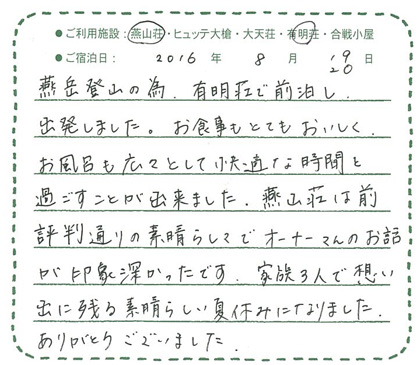 ●ご利用施設：燕山荘・ヒュッテ大槍・大天荘・有明荘・合戦小屋
●ご宿泊日： 2016 年 8 月 19 日
20
燕岳登山の為、有明荘で前泊し、
出発しました。お食事もとてもおいしく、
お風呂も広々として快適な時間を
過ごすことが出来ました。燕山荘は前
評判通りの素晴らしさでオーナーさんのお話
が印象深かったです。家族3人で想い
出に残る素晴らしい夏休みになりました。
ありがとうございました。